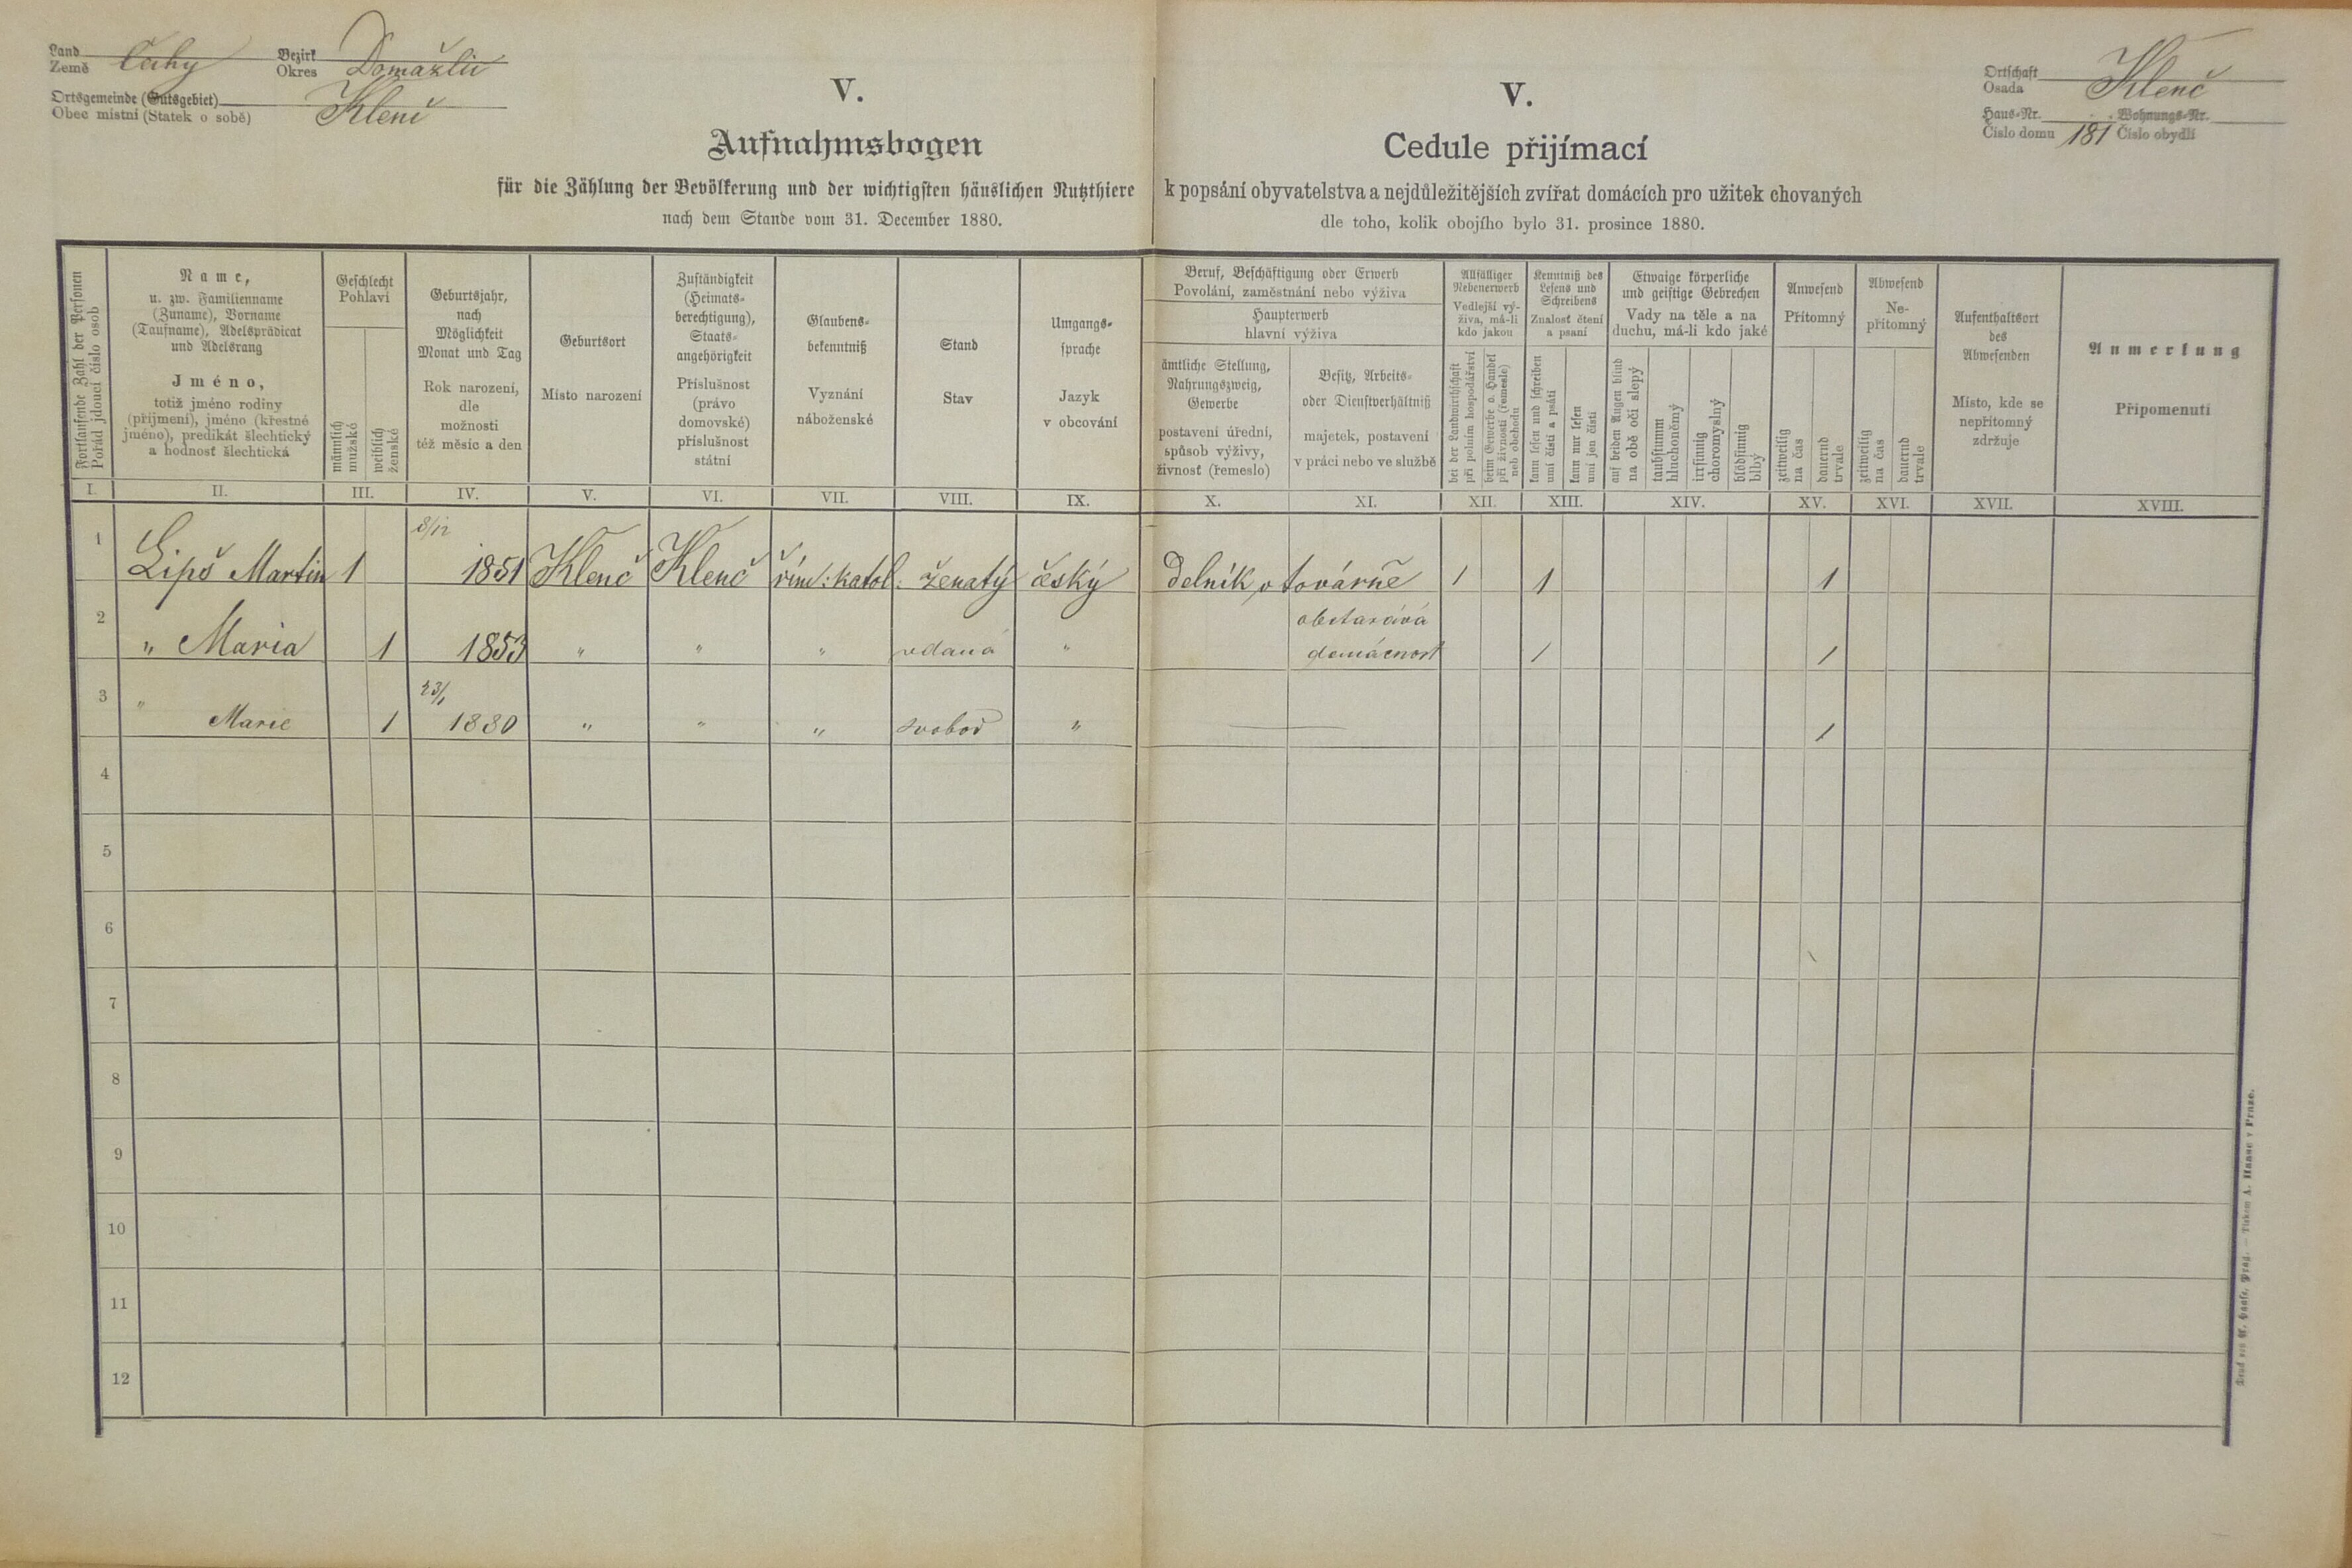 Land
Země Čechy
Bezirk
Okres Domažlic
Ortsgemeinde (Gutsgebiet)
Obec místní (Statek o sobě) Klenč
V.
Aufnahmsbogen
für die Zählung der Bevölkerung und der wichtigsten häuslichen Nutzthiere
nach dem Stande vom 31. December 1880.
V.
Cedule přijímací
k popsání obyvatelstva a nejdůležitějších zvířat domácích pro užitek chovaných
dle toho, kolik obojího bylo 31. prosince 1880.
Ortschaft
Osada Klenč
Haus-Nr. Wohnungs-Nr.
Číslo domu 181 Číslo obydlí
Fortlaufende Zahl der Personen
Pořád jdoucí číslo osob
Name,
u. zw. Familienname
(Zuname), Vorname
(Taufname), Adelsprädicat
und Adelsrang
Jméno,
totiž jméno rodiny
(příjmení), jméno (křestné
jméno), predikát šlechtický
a hodnosť šlechtická
Geschlecht
Pohlaví
männlich
mužské
weiblich
ženské
Geburtsjahr,
nach
Möglichkeit
Monat und Tag
Rok narození,
dle
možnosti
též měsíc a den
Geburtsort
Místo narození
Zuständigkeit
(Heimats-
berechtigung),
Staats-
angehörigkeit
Příslušnost
(právo
domovské)
příslušnost
státní
Glaubens-
bekenntniß
Vyznání
náboženské
Stand
Stav
Umgangs-
sprache
Jazyk
v obcování
Beruf, Beschäftigung oder Erwerb
Povolání, zaměstnání nebo výživa
Haupterwerb
hlavní výživa
ämtliche Stellung,
Nahrungszweig,
Gewerbe
postavení úřední,
spůsob výživy,
živnosť (řemeslo)
Besitz, Arbeits-
oder Dienstverhältniß
majetek, postavení
v práci nebo ve službě
Allfälliger
Nebenerwerb
Vedlejší vý-
živa, má-li
kdo jakou
bei der Landwirthschaft
při polním hospodářství
beim Gewerbe o. Handel
při živnosti (řemesle)
neb obchodu
Kenntniß des
Lesens und
Schreibens
Znalosť čtení
a psaní
kann lesen und schreiben
umí čísti a psáti
kann nur lesen
umí jen čísti
Etwaige körperliche
und geistige Gebrechen
Vady na těle a na
duchu, má-li kdo jaké
auf beiden Augen blind
na obě oči slepý
taubstumm
hluchoněmý
irrsinnig
choromyslný
blödsinnig
blbý
Anwesend
Přítomný
zeitweilig
na čas
dauernd
trvale
Abwesend
Ne-
přítomný
zeitweilig
na čas
dauernd
trvale
Aufenthaltsort
des
Abwesenden
Místo, kde se
nepřítomný
zdržuje
Anmerkung
Připomenutí
I. II. III. IV. V. VI. VII. VIII. IX. X. XI. XII. XIII. XIV. XV. XVI. XVII. XVIII.
1 Lipš Martin 1 8/12 1851 Klenč Klenč řím: katol. ženatý český Delník v továrně 1 1 1
2 " Maria 1 1853 " " " vdaná " obstarává domácnost 1 1
3 " Marie 1 23/1 1880 " " " svobod " 1
4
5
6
7
8
9
10
11
12
Druck von A. Haase, Prag. — Tiskem A. Haase v Praze.